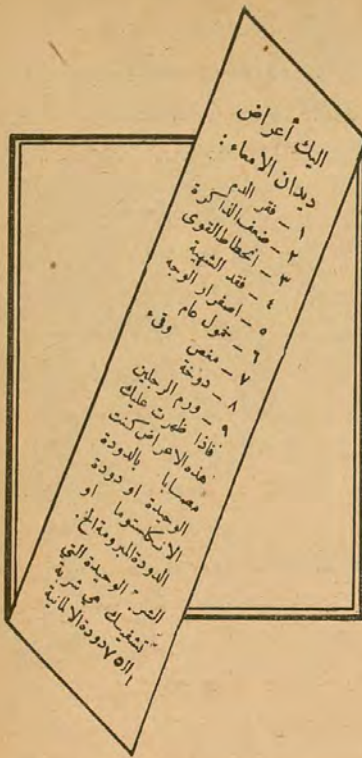 اليك أعراض
ديدان الامعاء :
١ - فقر الدم
٢ - ضعف الذاكرة
٣ - انحطاط القوى
٤ - فقد الشهية
٥ - اصفرار الوجه
٦ - خمول عام
٧ - مغص وقىء
٨ - دوخة
٩ - ورم الرجلين
فاذا ظهرت عليك
هذه الاعراض كنت
مصابا بالدودة
الوحيدة او دودة
الانكلستوما او
الدودة المبرومة الخ.
الشربة الوحيدة التي
تشفيك هي شربة
الـ ٧٥ دودة الالمانية